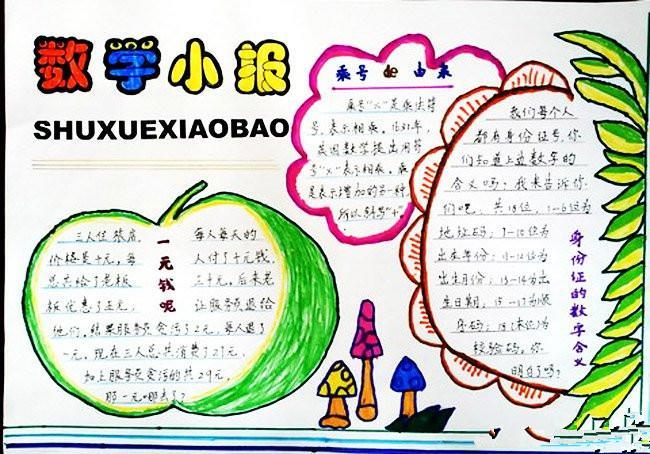 数学小报
SHUXUEXIAOBAO
乘号 de 由来
乘号"×"是乘法符
号,表示相乘。1631年,
英国数学提出用符
号"×"表示相乘。乘
是表示增加的另一种,
所以斜写"+"
我们每个人
都有身份证号,你
们知道上边数字的
含义吗?我来告诉你
们吧,共18位,1-6位为
地址码;7-10位为
出生年份;11-12位为
出生月份;13-14为出
生日期;15-17为顺
序码;18位为
校验码。你
明白了吗?
身份证的数字含义
一元钱呢
三人住旅店,
价格是十元,每
总共给了老板
板优惠了五元,
每人每天的
人付了十元钱,
三十元。后来老
让服务员退给
他们,结果服务员贪污了2元,每人退了
一元,现在三人总共消费了27元,
加上服务员贪污的共29元,
那一元哪去了?